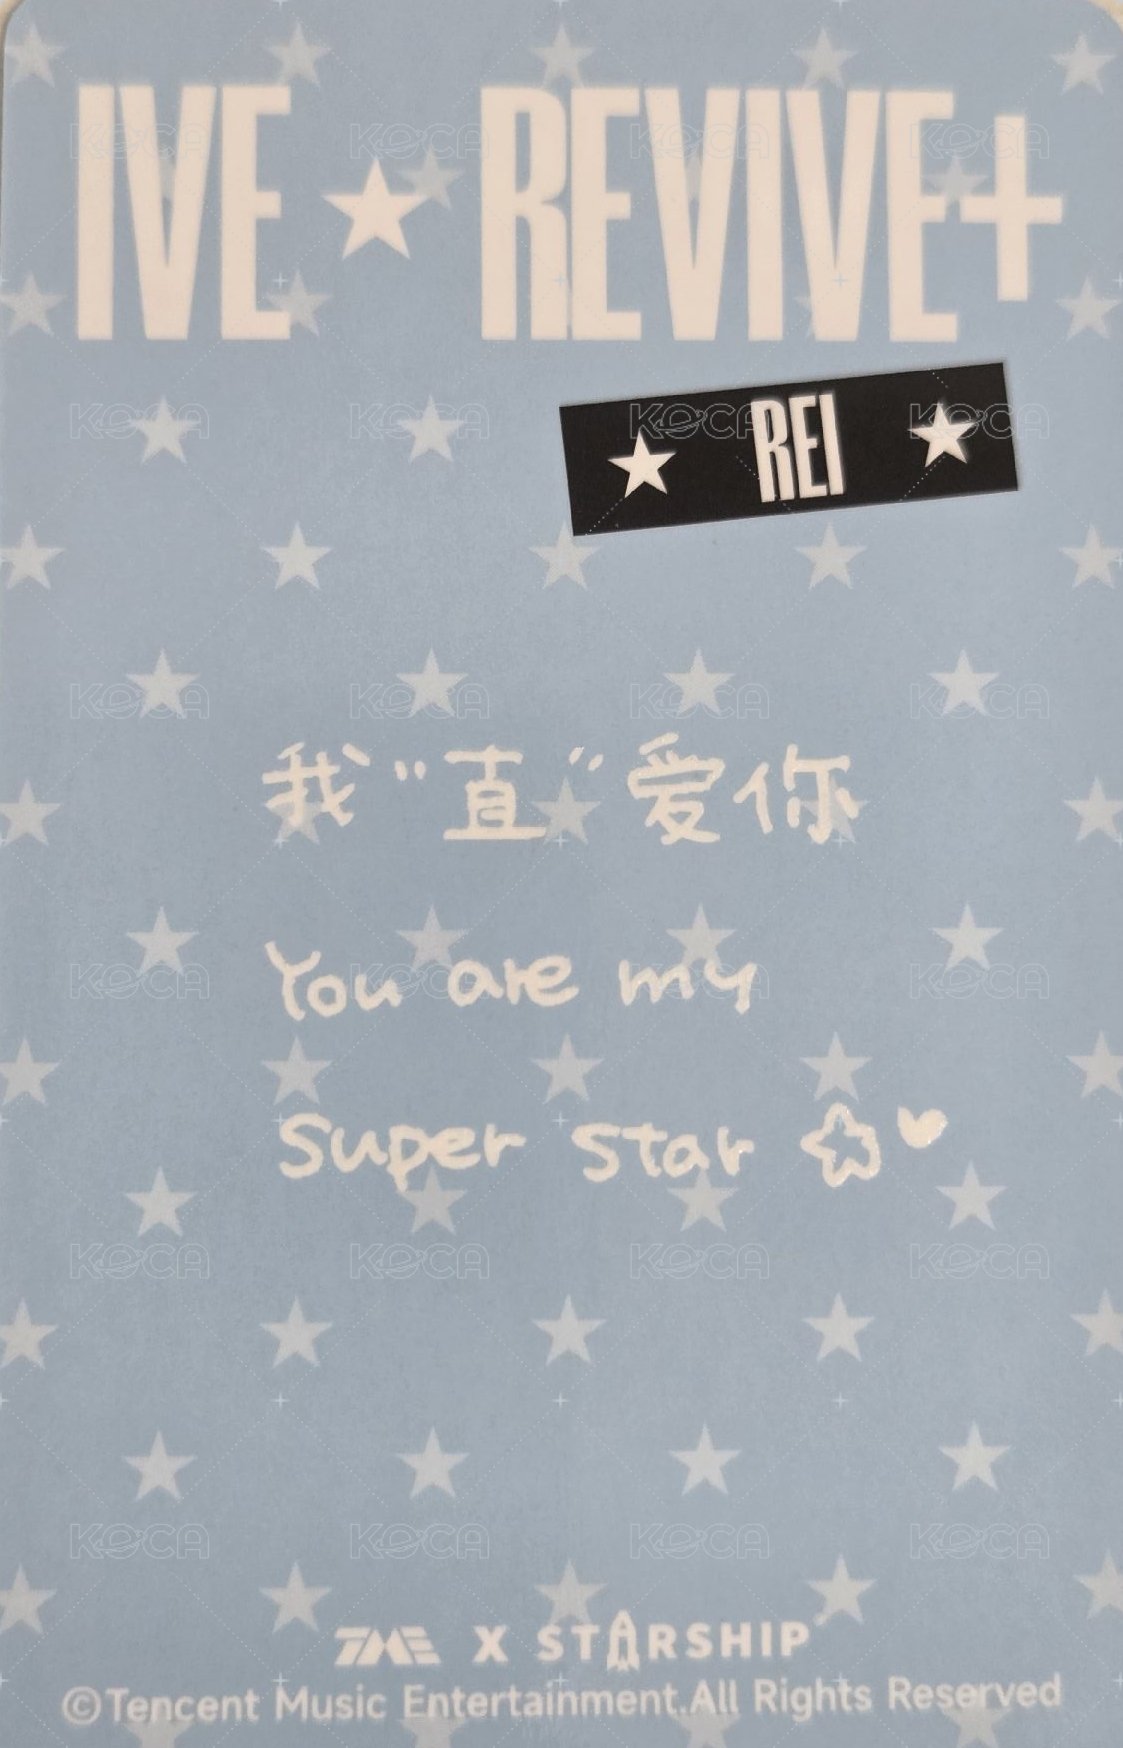 IVE ★ REVIVE+
★ REI ★
我“直”爱你
You are my
Super star ☆♥
TME X STARSHIP
©Tencent Music Entertainment.All Rights Reserved
KOCA